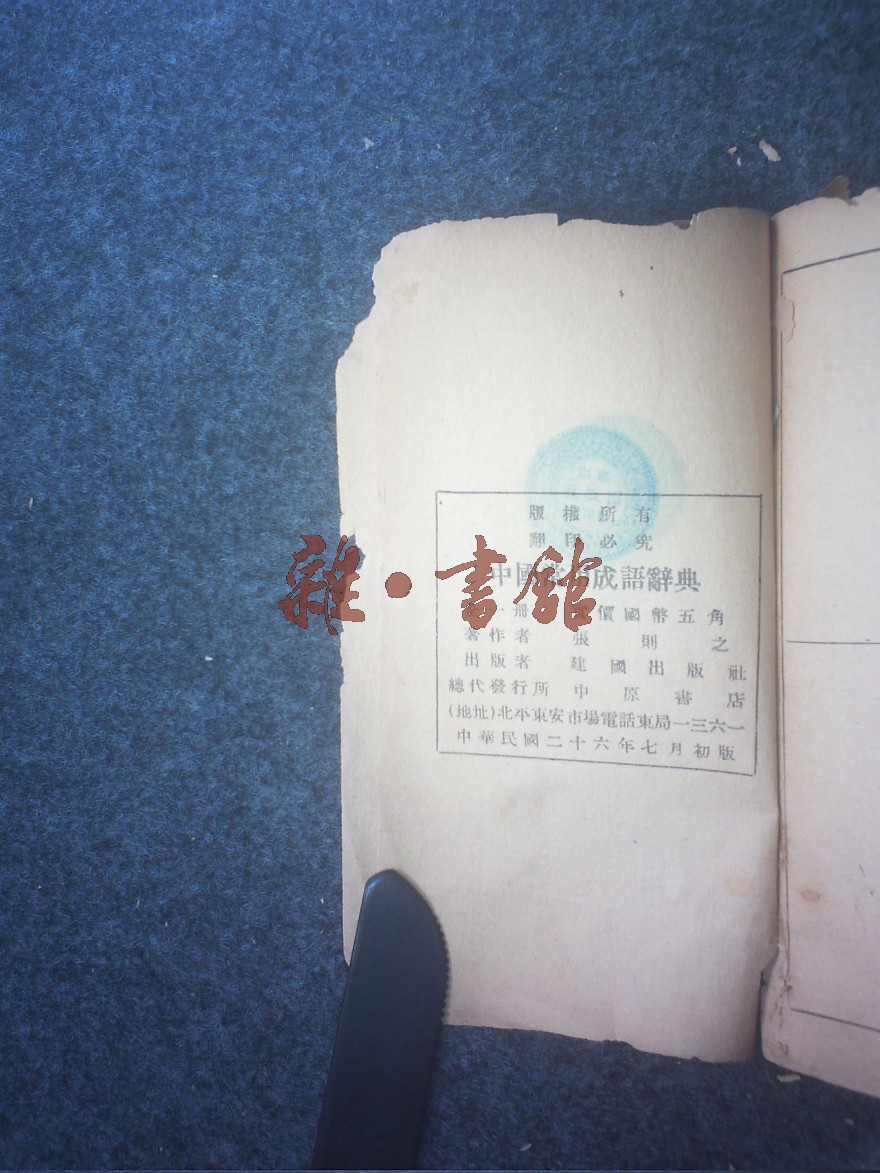 版權所有
翻印必究
中國 成語辭典
一冊 價國幣五角
著作者 張則之
出版者 建國出版社
總代發行所 中原書店
(地址)北平東安市場電話東局一三六一
中華民國二十六年七月初版
雜·書館